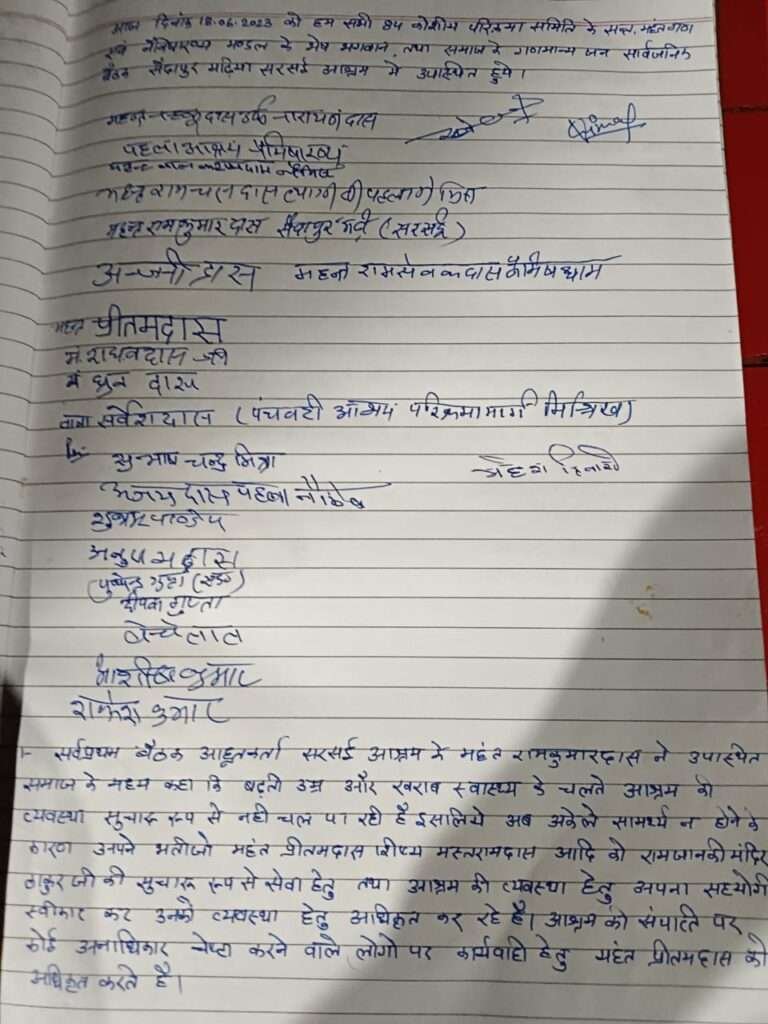 आज दिनांक 18.06.2023 को हम सभी 84 कोशीय परिक्रमा समिति के सन्त, महंतगण
एवं नैमिषारण्य मण्डल के भेष भगवान, तथा समाज के गणमान्य जन सार्वजनिक
बैठक सैदापुर मढ़िया सरसई आश्रम मे उपस्थित हुये।
दास उर्फ नारायण दास
पहला आश्रम नैमिषारण्य
महन्त राम दास त्यागी
महन्त रामकुमार दास सैदापुर मढ़ी (सरसई)
अन्जनी दास महन्त रामसेवक दास नैमिषधाम
महंत प्रीतमदास
म. राघवदास जी
म दास
बाबा सर्वेशदास (पंचवटी आश्रम परिक्रमा मार्ग मिश्रिख)
सुभाष चन्द्र मिश्रा
अजय दास पहला
शुभम पाण्डेय
अनुपम दास
पुष्पेन्द्र गुप्ता
दीपक गुप्ता
बेन्चेलाल
आशीष कुमार
राकेश कुमार
1- सर्वप्रथम बैठक आहूतकर्ता सरसई आश्रम के महंत रामकुमारदास ने उपास्थित
समाज के मध्य कहा कि बढ़ती उम्र और खराब स्वास्थ्य के चलते आश्रम की
व्यवस्था सुचारू रूप से नही चल पा रही है इसलिये अब अकेले सामर्थ्य न होने के
कारण उनपने भतीजो महंत प्रीतमदास शिष्य मस्तरामदास आदि को रामजानकी मंदिर
ठाकुर जी की सुचारू रूप से सेवा हेतु तथा आश्रम की व्यवस्था हेतु अपना सहयोगी
स्वीकार कर उनको व्यवस्था हेतु अधिकृत कर रहे है। आश्रम की संपत्ति पर
कोई अनाधिकार चेष्टा करने वाले लोगो पर कार्यवाही हेतु महंत प्रीतमदास को
अधिकृत करते है।